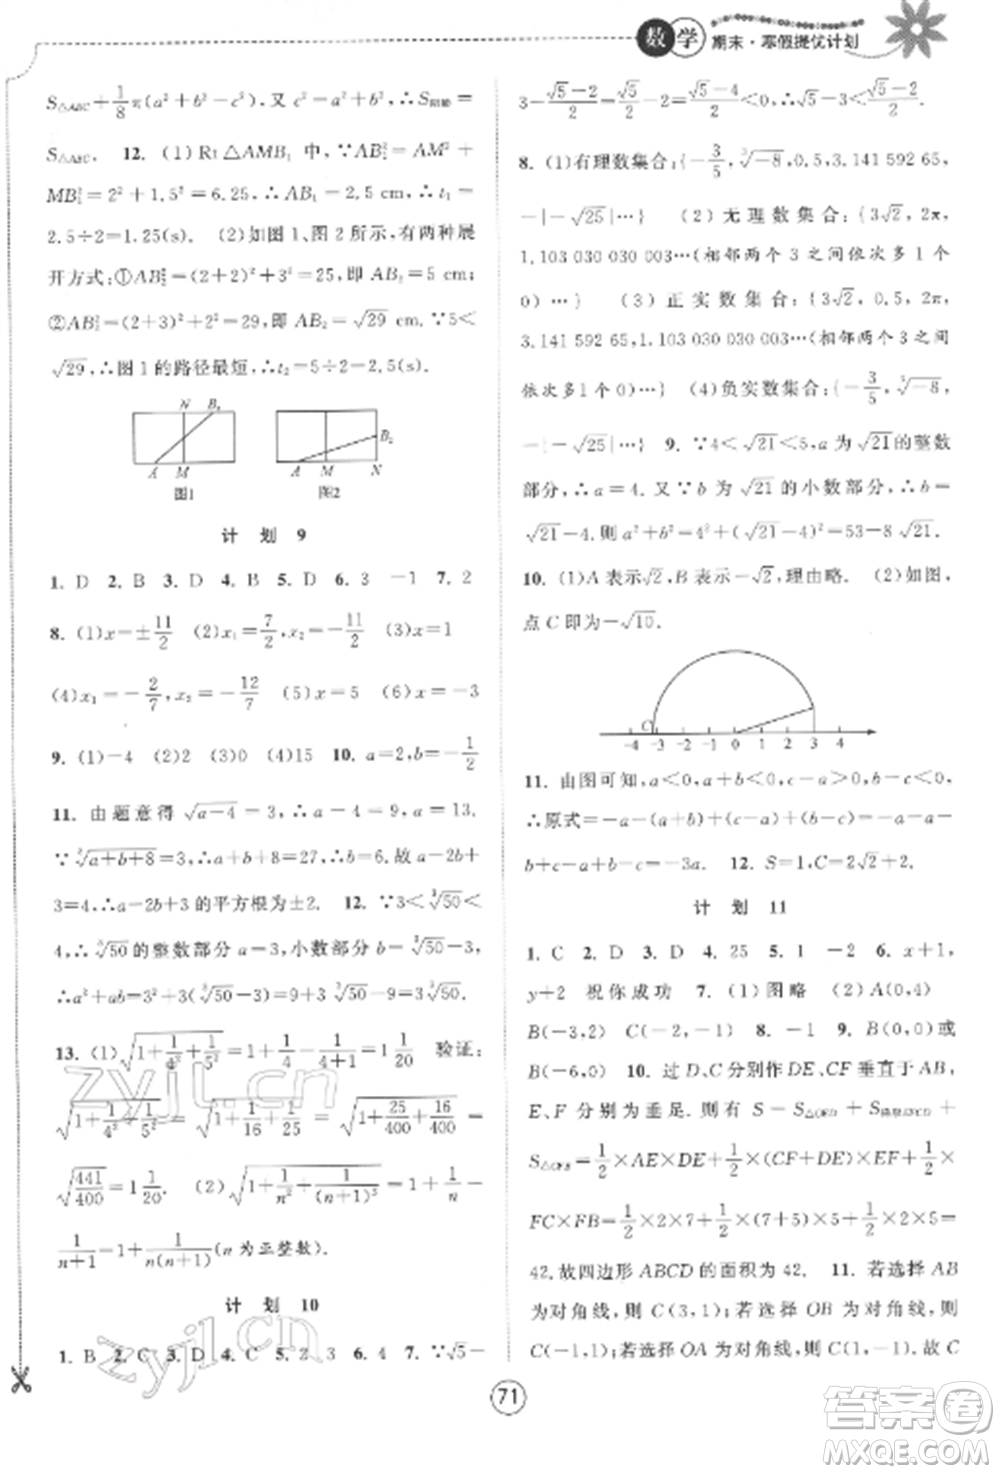 数学 期末·寒假提优计划
S△ABC+1/8π(a²+b²-c²),又 c²=a²+b²,∴S阴影=
S△ABC. 12. (1)Rt△AMB₁ 中,∵AB₁²=AM²+
MB₁²=2²+1.5²=6.25,∴AB₁=2.5 cm,∴t₁=
2.5÷2=1.25(s). (2)如图 1、图 2 所示,有两种展
开方式:①AB₂²=(2+2)²+3²=25,即 AB₂=5 cm;
②AB₂²=(2+3)²+2²=29,即 AB₂=√29 cm. ∵5<
√29,∴图 1 的路径最短,∴t₂=5÷2=2.5(s).
N B₁
A M
图1
B₂
A M N
图2
计 划 9
1. D 2. B 3. D 4. B 5. D 6. 3 -1 7. 2
8. (1)x=±11/2 (2)x₁=7/2,x₂=-5/2 (3)x=1
(4)x₁=-2/7,x₂=-12/7 (5)x=4 (6)x=-3
9. (1)-4 (2)2 (3)0 (4)15 10. a=2,b=-1/2
11. 由题意得 √a-4=3,∴a-4=9,∴a=13.
∵³√a+b+8=3,∴a+b+8=27,∴b=6.故 a-2b+
3=4,∴a-2b+3的平方根为±2. 12. ∵3<³√50<
4,∴³√50的整数部分 a=3,小数部分 b=³√50-3,
∴a²+ab=3²+3(³√50-3)=9+3³√50-9=3³√50.
13. (1)√1+1/4²+1/5²=1+1/4-1/4+1=1 1/20 验证:
√1+1/4²+1/5²=√1+1/16+1/25=√1+25/400+16/400=
√441/400=1 1/20. (2)√1+1/n²+1/(n+1)²=1+1/n-
1/n+1=1+1/n(n+1)(n 为正整数).
计 划 10
1. B 2. C 3. C 4. C 5. 2 3 6. 4 7. ∵√5-
3-√5-2/2=√5/2-2=√5-4/2<0,∴√5-3<√5-2/2.
8. (1)有理数集合:{-3/5,³√-8,0,0.5,3.141 592 65,
-|-√25|…} (2)无理数集合:{3√2,2π,
1.103 030 030 003…(相邻两个 3 之间依次多 1 个
0)…} (3)正实数集合:{3√2,0.5,2π,
3.141 592 65,1.103 030 030 003…(相邻两个 3 之间
依次多1个0)…} (4)负实数集合:{-3/5,³√-8,
-|-√25|…} 9. ∵4<√21<5,a 为√21的整数
部分,∴a=4. 又∵b 为√21的小数部分,∴b=
√21-4.则 a²+b²=4²+(√21-4)²=53-8√21.
10. (1)A 表示√2,B 表示-√2,理由略. (2)如图,
点 C 即为-√10.
C
-4 -3 -2 -1 0 1 2 3 4
11. 由图可知,a<0,a+b<0,c-a>0,b+c<0,
∴原式=-a-(a+b)-(c-a)-(b+c)=-a-
b+c-a+b-c=-3a. 12. S=1,C=2√2+2.
计 划 11
1. C 2. D 3. D 4. 25 5. 1 -2 6. x+1,
y+2 祝你成功 7. (1)图略 (2)A(0,4)
B(-3,2) C(-2,-1) 8. -1 9. B(0,0)或
B(-6,0) 10. 过 D、C 分别作 DE、CF 垂直于 AB,
E、F 分别为垂足.则有 S=S△OED+S梯形EFCD+
S△CFB=1/2×AE×DE+1/2×(CF+DE)×EF+1/2×
FC×FB=1/2×2×7+1/2×(7+5)×5+1/2×2×5=
42.故四边形 ABCD 的面积为 42. 11. 若选择 AB
为对角线,则 C(3,1);若选择 OB 为对角线,则
C(-3,1);若选择 OA 为对角线,则 C(1,-1).故 C
71
zyjl.cn
zyjl.cn
答案圈
MXQE.COM